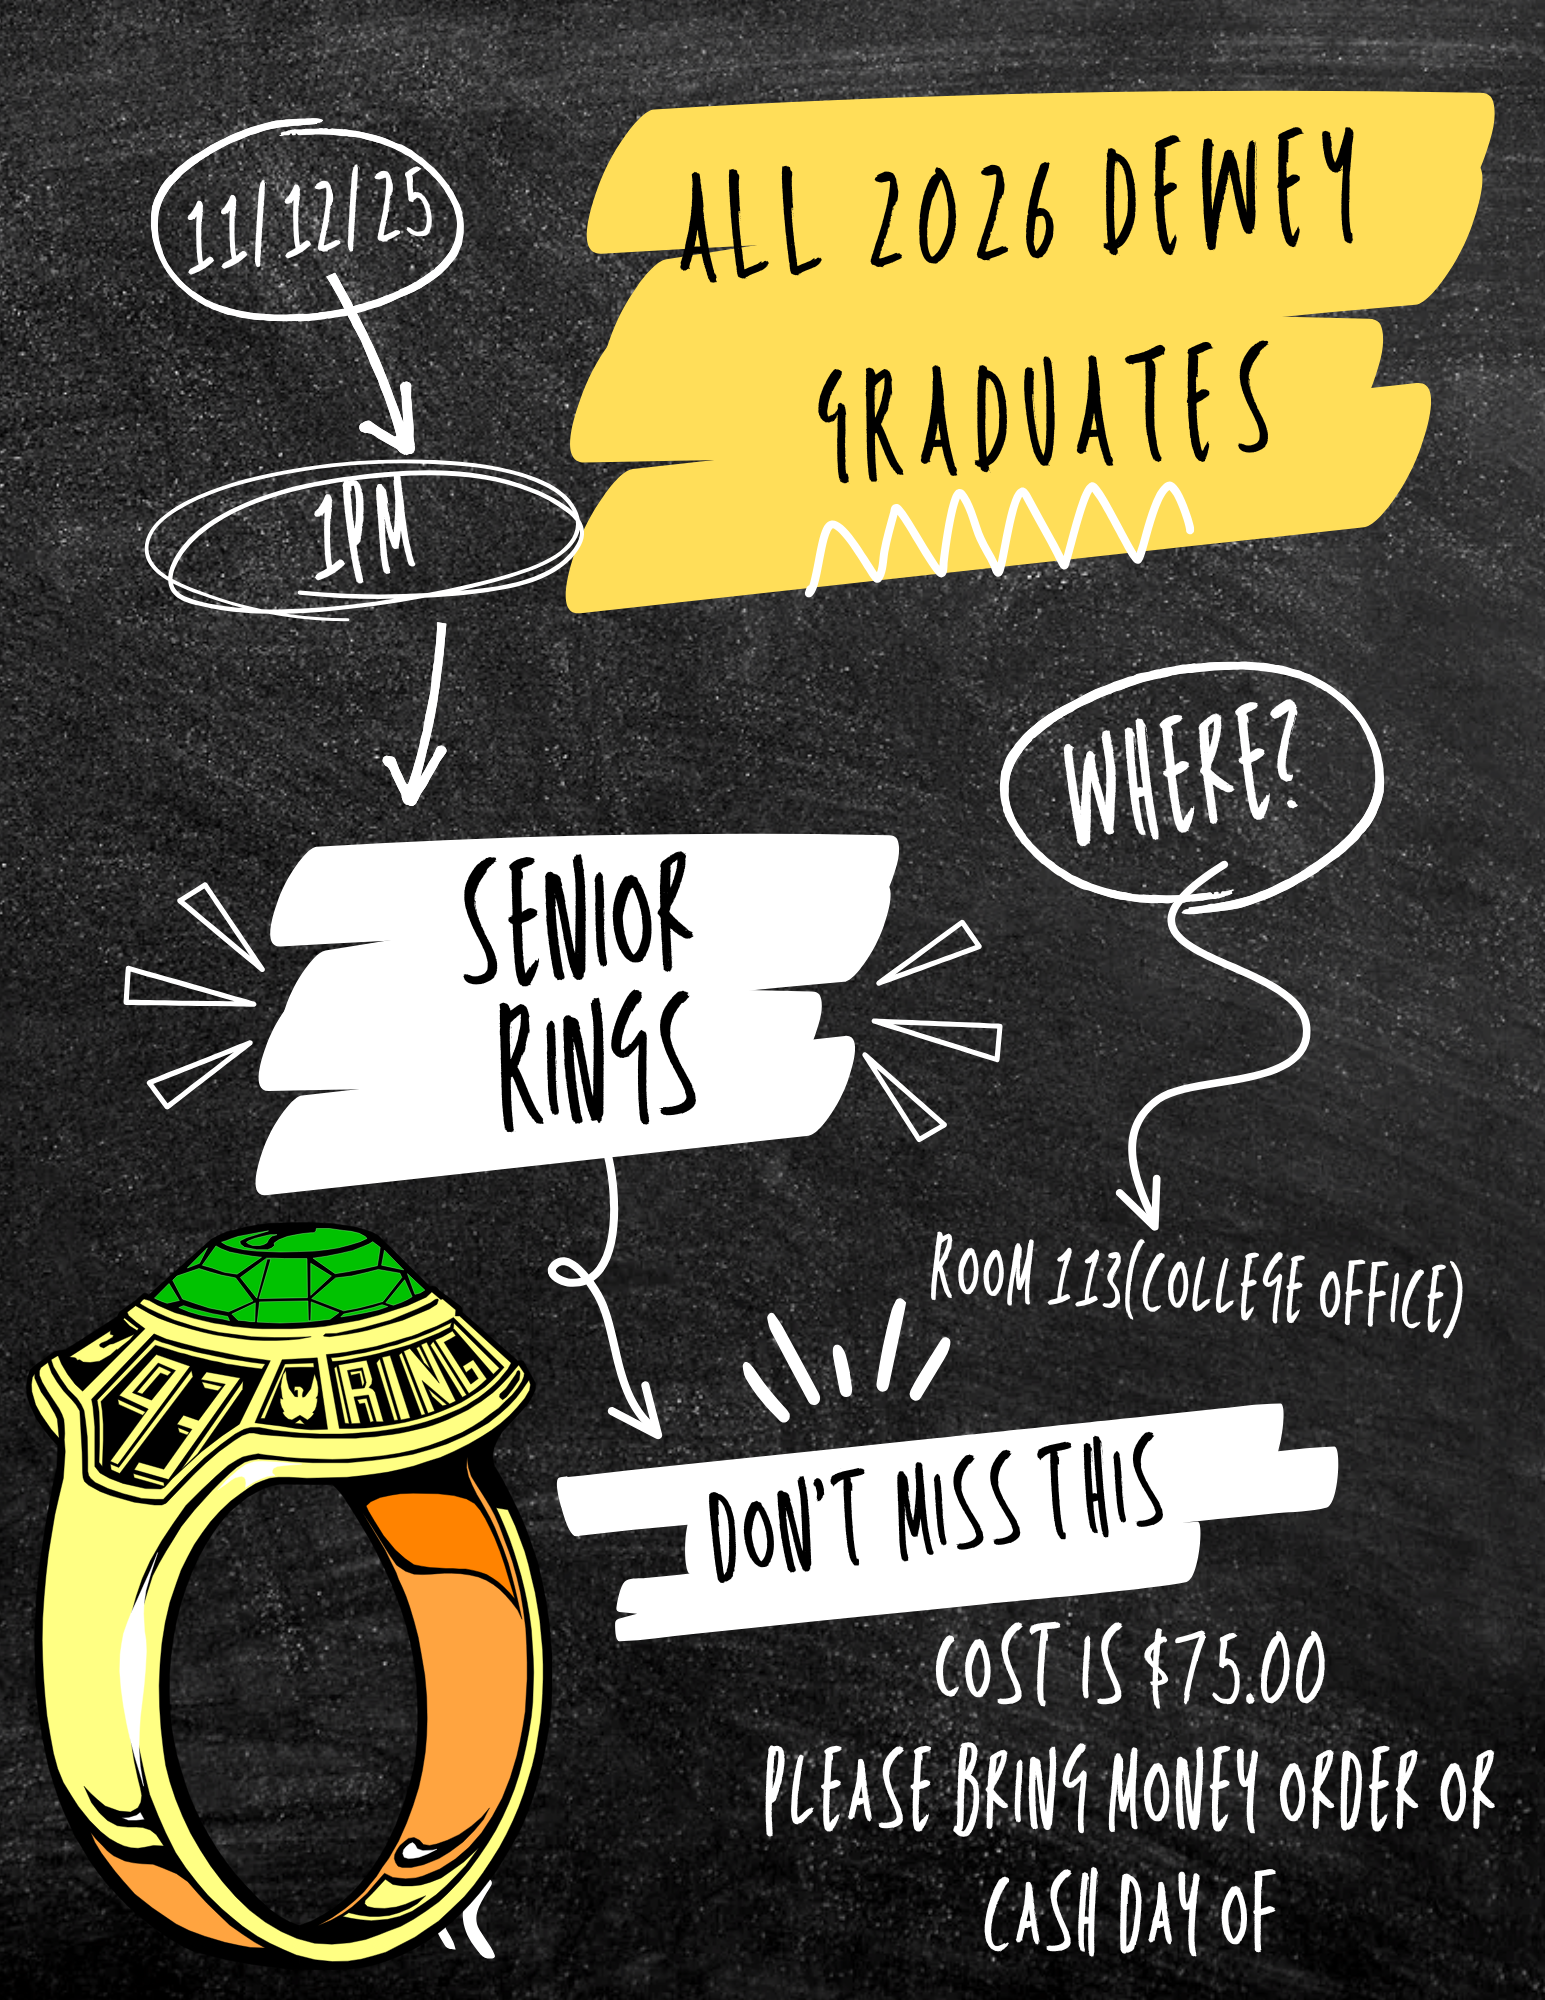 11/12/25
ALL 2026 DEWEY
GRADUATES
1PM
WHERE?
SENIOR
RINGS
ROOM 113(COLLEGE OFFICE)
93
RING
DON'T MISS THIS
COST IS $75.00
PLEASE BRING MONEY ORDER OR
CASH DAY OF